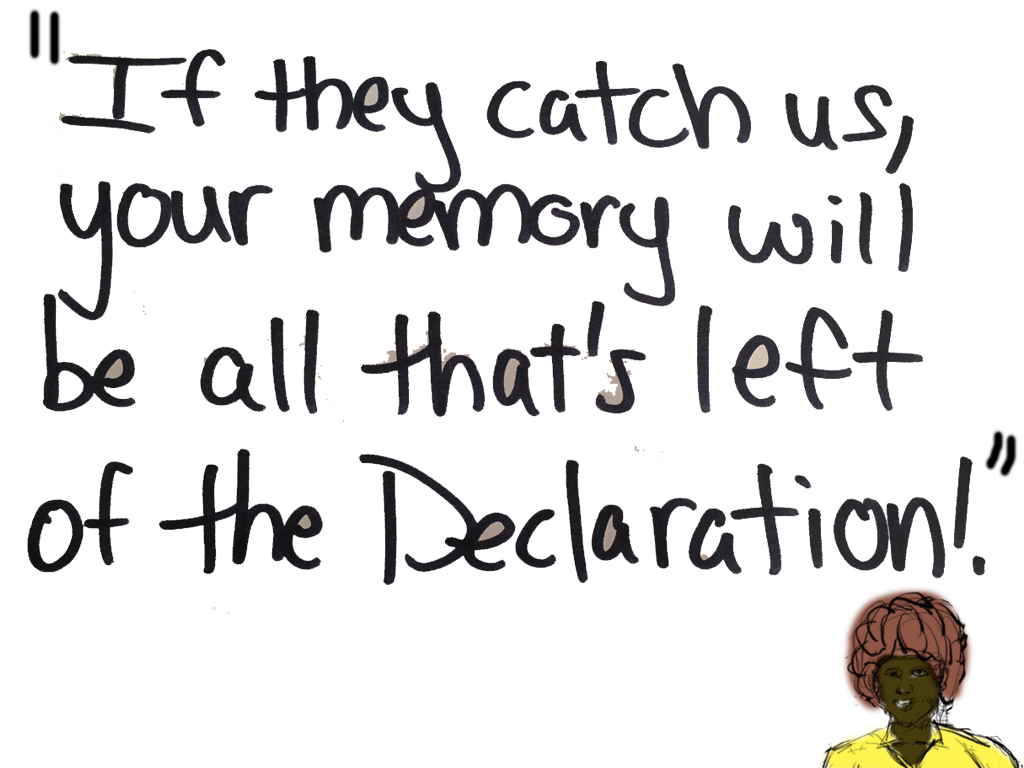 "If they catch us,
your memory will
be all that's left
of the Declaration!"